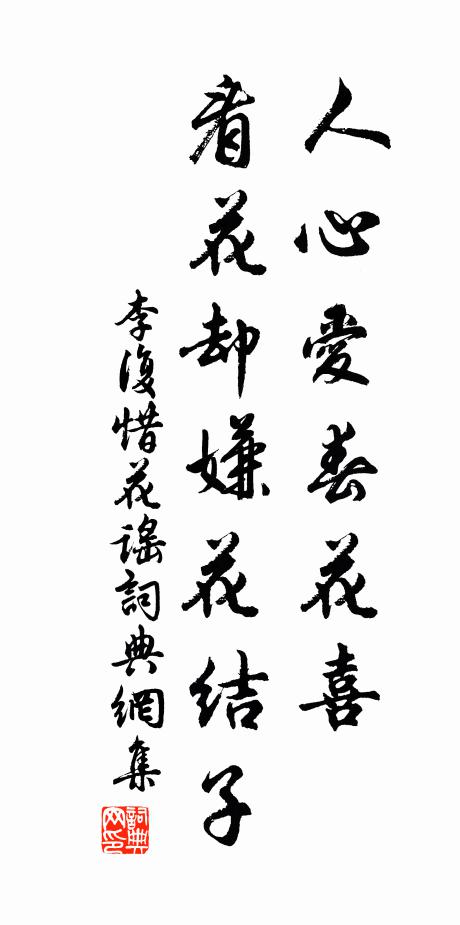 人心愛春花喜
看花却嫌花结子
李復惜花謡詞典網集
詞典网印